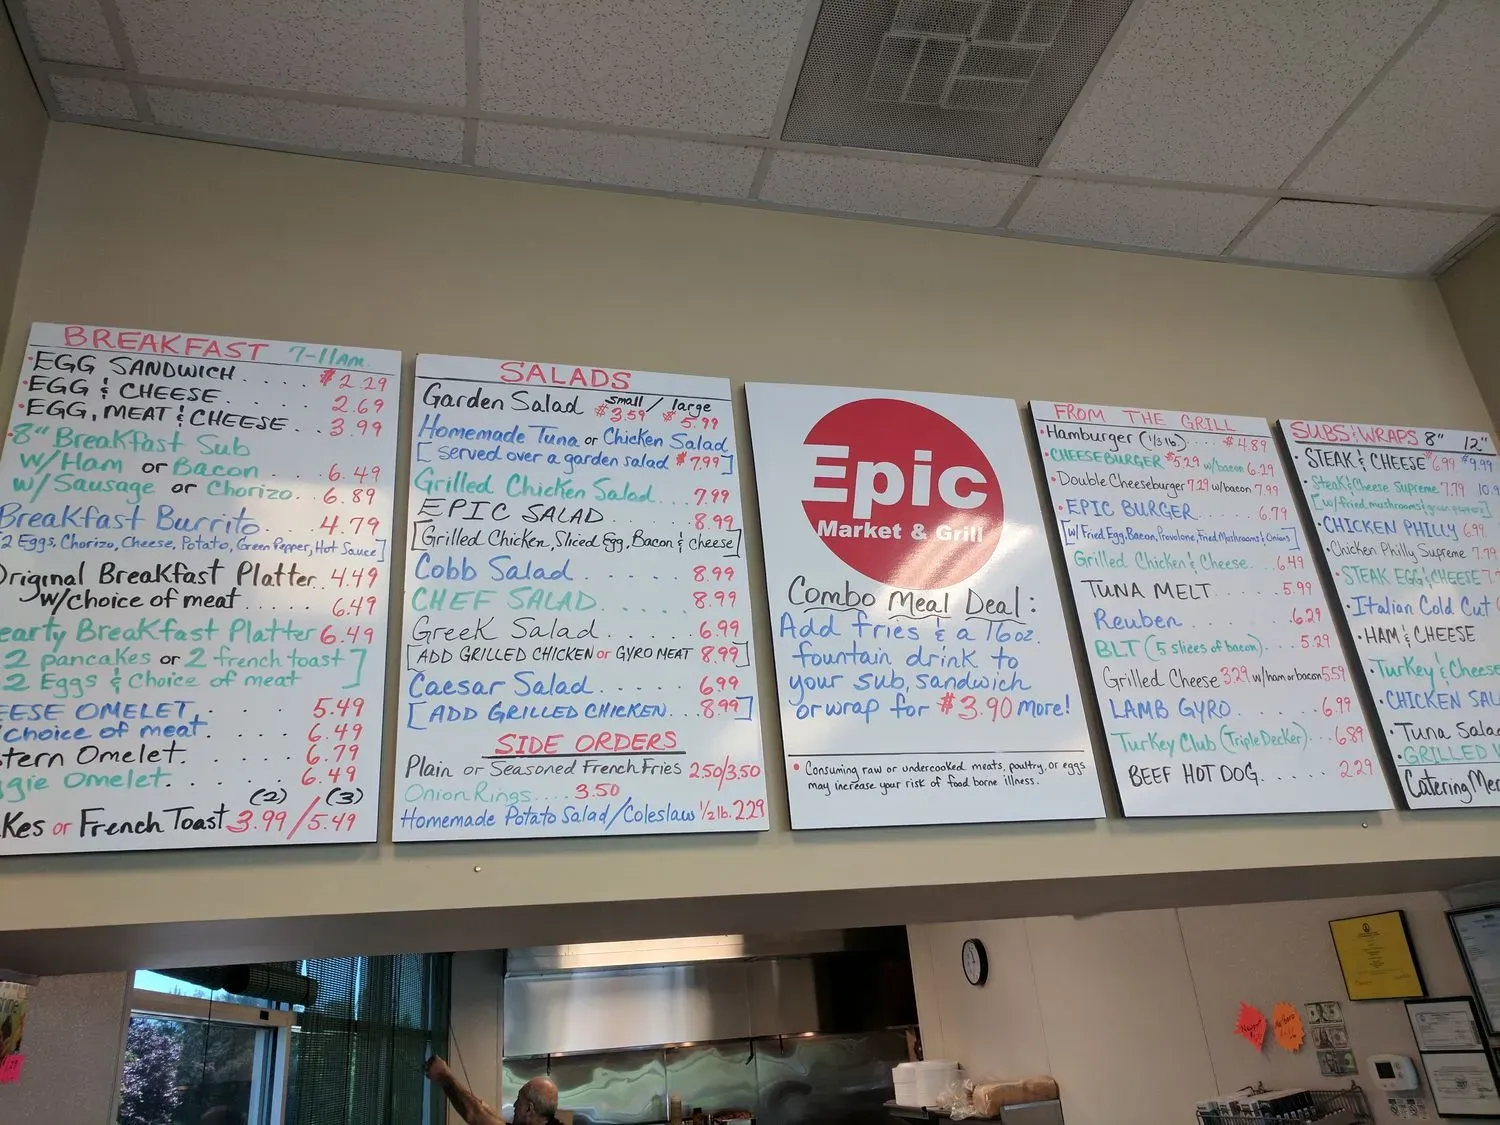 BREAKFAST 7-11AM.
• EGG SANDWICH.... $2.29
• EGG & CHEESE...... 2.69
• EGG, MEAT & CHEESE.. 3.99
• 8" Breakfast Sub
w/Ham or Bacon.... 6.49
w/Sausage or Chorizo.. 6.89
Breakfast Burrito... 4.79
2 Eggs, Chorizo, Cheese, Potato, Green Pepper, Hot Sauce]
Original Breakfast Platter.. 4.49
w/choice of meat..... 6.49
earty Breakfast Platter 6.49
2 pancakes or 2 french toast
2 Eggs & Choice of meat]
EESE OMELET.... 5.49
choice of meat.... 6.49
stern Omelet..... 6.79
ggie Omelet..... 6.49
(2) (3)
kes or French Toast 3.99/5.49
SALADS
Garden Salad small $3.59 / large $5.99
Homemade Tuna or Chicken Salad
[served over a garden salad $7.99]
Grilled Chicken Salad... 7.99
EPIC SALAD...... 8.99
[Grilled Chicken, Sliced Egg, Bacon & Cheese]
Cobb Salad...... 8.99
CHEF SALAD..... 8.99
Greek Salad...... 6.99
[ADD GRILLED CHICKEN or GYRO MEAT 8.99]
Caesar Salad..... 6.99
[ADD GRILLED CHICKEN... 8.99]
SIDE ORDERS
Plain or Seasoned French Fries 2.50/3.50
Onion Rings.... 3.50
Homemade Potato Salad/Coleslaw 1/2 lb. 2.29
Epic
Market & Grill
Combo Meal Deal:
Add fries & a 16oz.
fountain drink to
your sub, sandwich
or wrap for $3.90 more!
• Consuming raw or undercooked meats, poultry, or eggs
may increase your risk of food borne illness.
FROM THE GRILL
• Hamburger (1/3 lb.).... $4.89
• CHEESEBURGER $5.29 w/bacon 6.29
• Double Cheeseburger 7.29 w/bacon 7.99
• EPIC BURGER...... 6.79
[w/ Fried Egg, Bacon, Provolone, Fried Mushrooms & Onions]
Grilled Chicken & Cheese... 6.49
TUNA MELT...... 5.99
Reuben........ 6.29
BLT (5 slices of bacon).... 5.29
Grilled Cheese 3.29 w/ham or bacon 5.59
LAMB GYRO...... 6.99
Turkey Club (Triple Decker)... 6.89
BEEF HOT DOG..... 2.29
SUBS & WRAPS 8" 12"
• STEAK & CHEESE $6.99 $9.99
• Steak & Cheese Supreme 7.79 10.9
[w/fried mushrooms & green peppers]
• CHICKEN PHILLY 6.99
• Chicken Philly Supreme 7.79
• STEAK EGG & CHEESE 7.
• Italian Cold Cut
• HAM & CHEESE
• Turkey & Cheese
• CHICKEN SAL
• Tuna Salad
• GRILLED V
Catering Me